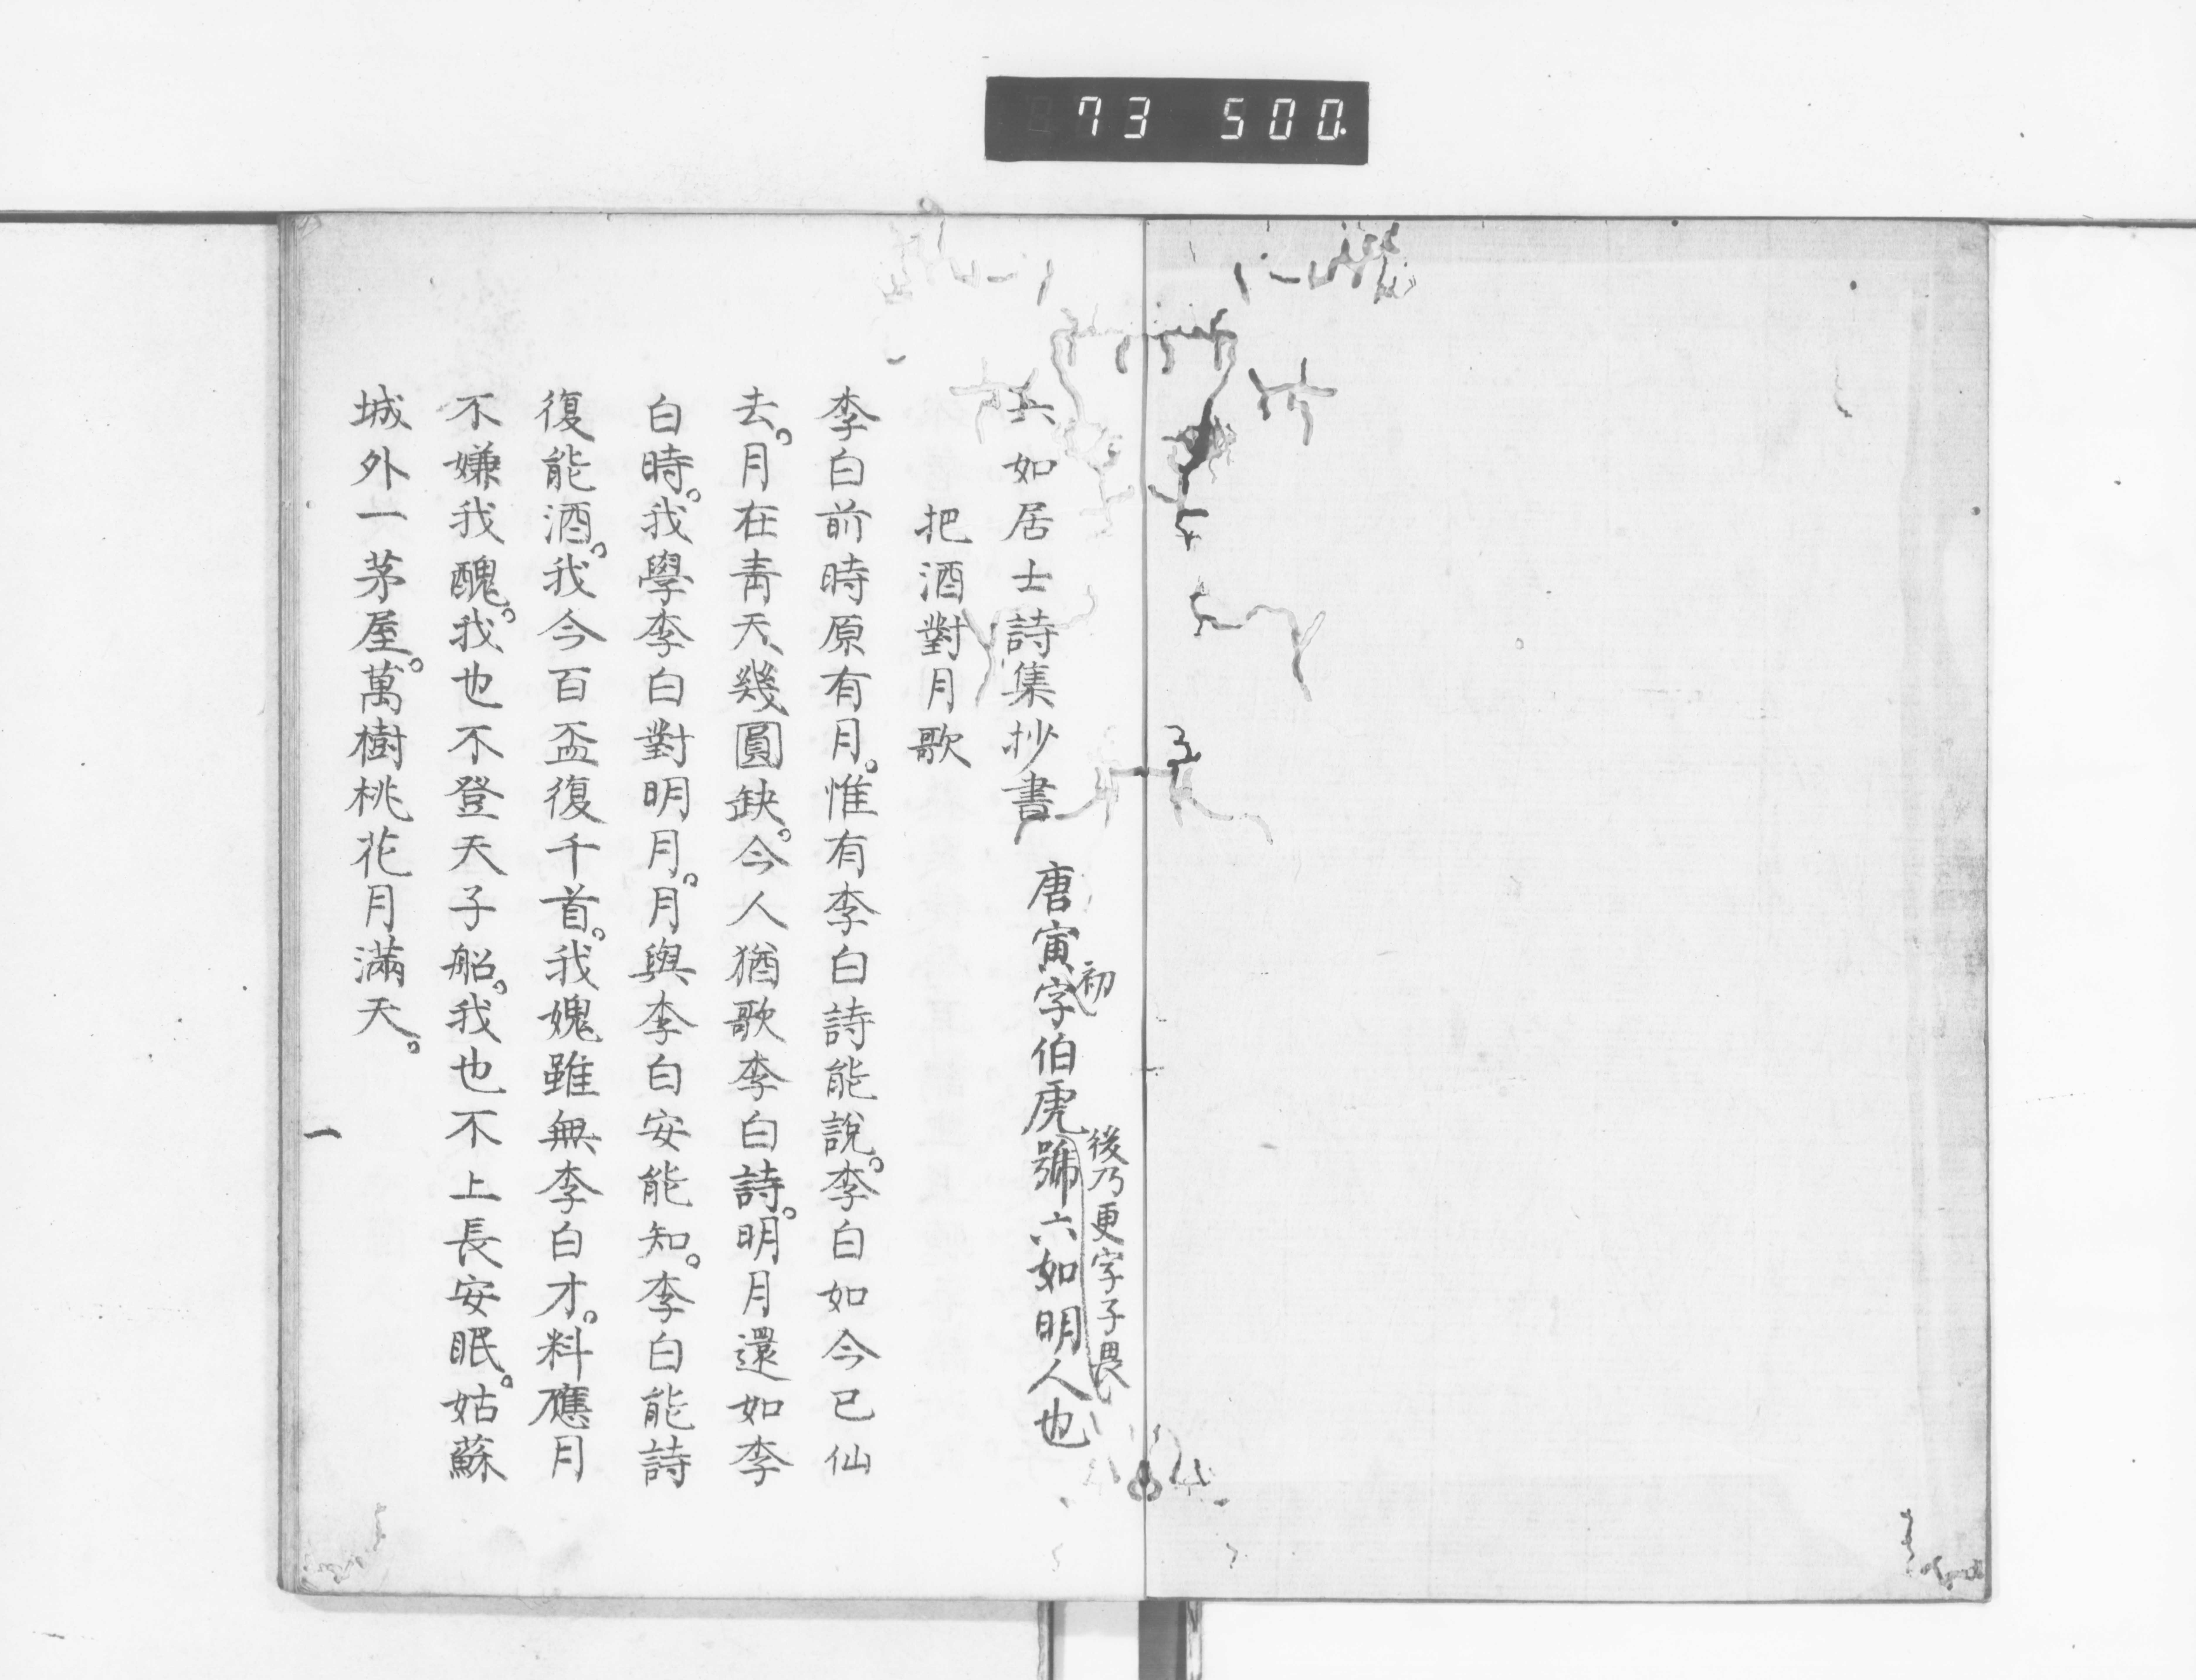 73 500.
六如居士詩集抄書 唐寅初字伯虎後乃更字子畏號六如明人也
把酒對月歌
李白前時原有月。惟有李白詩能說。李白如今已仙
去。月在青天幾圓缺。今人猶歌李白詩。明月還如李
白時。我學李白對明月。月與李白安能知。李白能詩
復能酒。我今百盃復千首。我媿雖無李白才。料應月
不嫌我醜。我也不登天子船。我也不上長安眠。姑蘇
城外一茅屋。萬樹桃花月滿天。
一